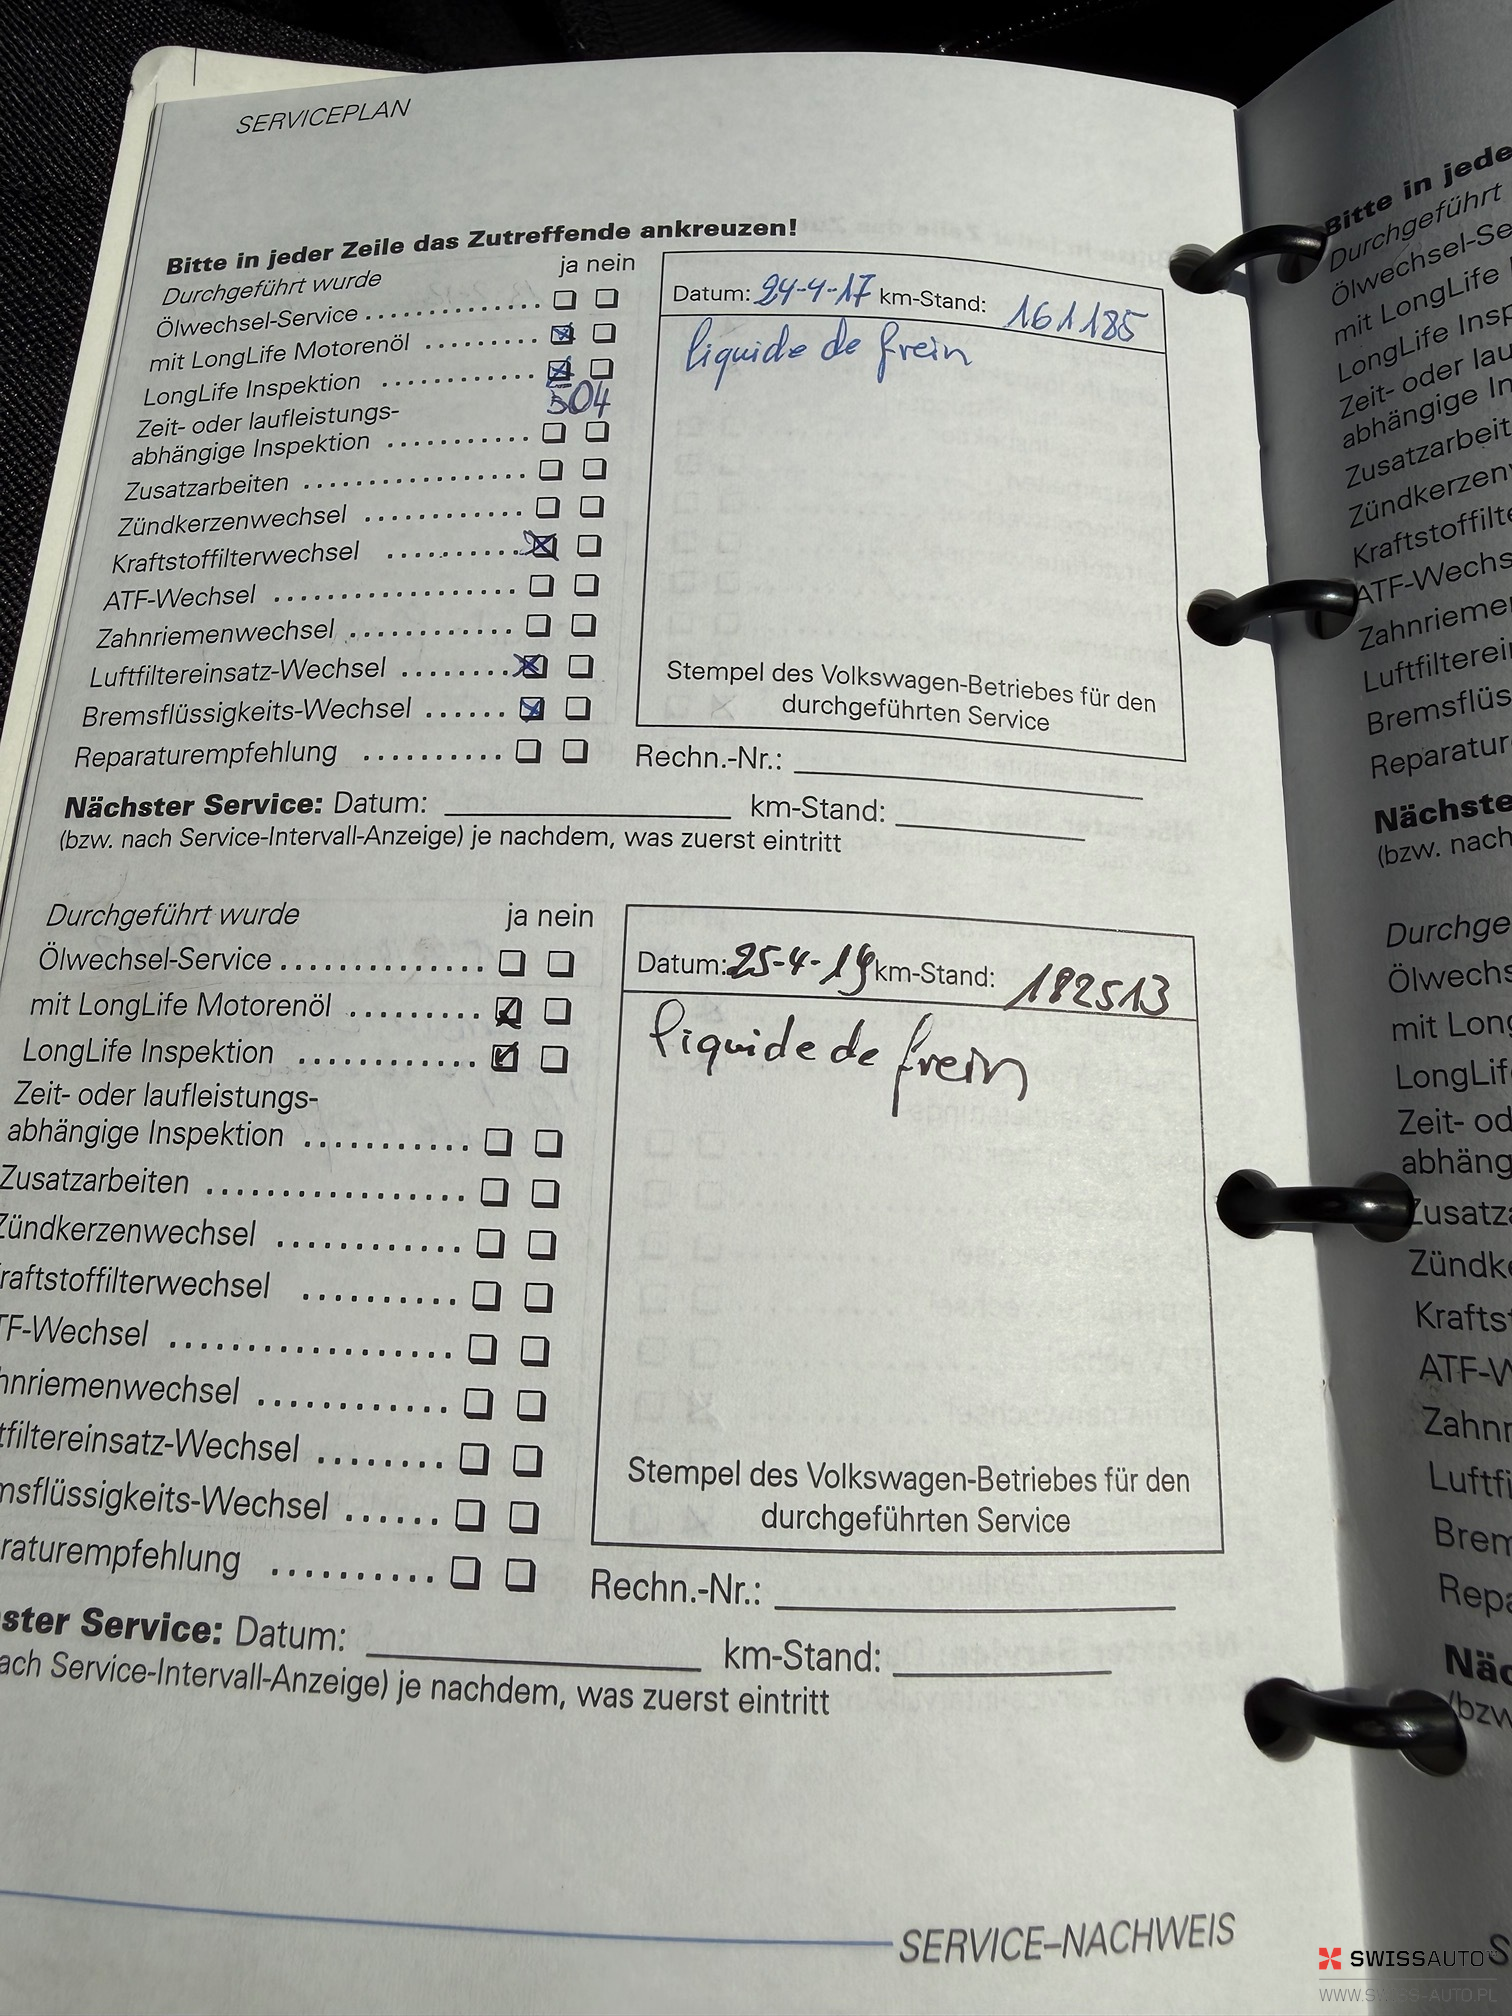 SERVICEPLAN
Bitte in jeder Zeile das Zutreffende ankreuzen!
Durchgeführt wurde ja nein
Ölwechsel-Service
mit LongLife Motorenöl
LongLife Inspektion
504
Zeit- oder laufleistungs-
abhängige Inspektion
Zusatzarbeiten
Zündkerzenwechsel
Kraftstoffilterwechsel
ATF-Wechsel
Zahnriemenwechsel
Luftfiltereinsatz-Wechsel
Bremsflüssigkeits-Wechsel
Reparaturempfehlung
Datum: 24-4-17 km-Stand: 161185
liquide de frein
Stempel des Volkswagen-Betriebes für den
durchgeführten Service
Rechn.-Nr.:
Nächster Service: Datum: km-Stand:
(bzw. nach Service-Intervall-Anzeige) je nachdem, was zuerst eintritt
Durchgeführt wurde ja nein
Ölwechsel-Service
mit LongLife Motorenöl
LongLife Inspektion
Zeit- oder laufleistungs-
abhängige Inspektion
Zusatzarbeiten
Zündkerzenwechsel
raftstoffilterwechsel
TF-Wechsel
hnriemenwechsel
tfiltereinsatz-Wechsel
msflüssigkeits-Wechsel
raturempfehlung
Datum: 25-4-19 km-Stand: 182513
liquide de frein
Stempel des Volkswagen-Betriebes für den
durchgeführten Service
Rechn.-Nr.:
ster Service: Datum: km-Stand:
ach Service-Intervall-Anzeige) je nachdem, was zuerst eintritt
SERVICE–NACHWEIS
Bitte in jede
Durchgeführt
Ölwechsel-Se
mit LongLife
LongLife Insp
Zeit- oder lau
abhängige In
Zusatzarbeit
Zündkerzen
Kraftstoffilt
ATF-Wechs
Zahnriemen
Luftfilterein
Bremsflüs
Reparatur
Nächster
(bzw. nach
Durchge
Ölwechs
mit Long
LongLif
Zeit- od
abhäng
Zusatz
Zündke
Krafts
ATF-W
Zahnr
Luftfi
Brem
Repa
Näc
(bzw
S
SWISSAUTO
WWW.SWISS-AUTO.PL